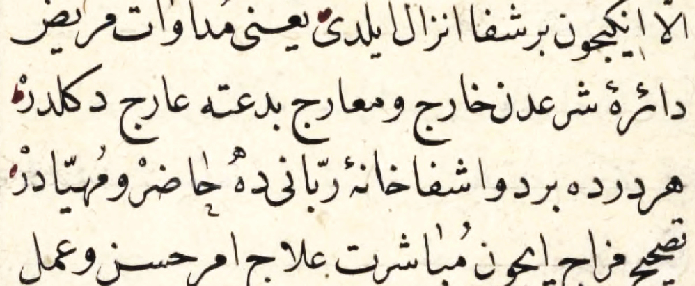 الّا انكیچون بر شفا انزال ایلدی یعنی مداوات مریض
دائرۀ شرعدن خارج و معارج بدعته عارج دكلدرْ
هر درده بر دوا شفاخانۀ ربّانی ده حاضرْ و مُهیّادرْ
تصحیح مزاج ایچون مُباشرت علاج امر حسن و عمل